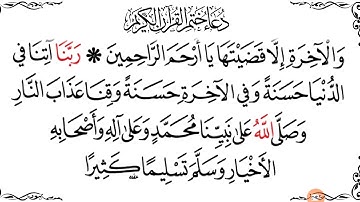 دُعَاءُ خَتْمِ الْقُرْآنِ الْكَرِيمِ
وَالْآخِرَةِ إِلَّا قَضَيْتَهَا يَا أَرْحَمَ الرَّاحِمِينَ * رَبَّنَا آتِنَا فِي
الدُّنْيَا حَسَنَةً وَفِي الْآخِرَةِ حَسَنَةً وَقِنَا عَذَابَ النَّارِ
وَصَلَّى اللَّهُ عَلَى نَبِيِّنَا مُحَمَّدٍ وَعَلَى آلِهِ وَأَصْحَابِهِ
الْأَخْيَارِ وَسَلَّمَ تَسْلِيمًا كَثِيرًا